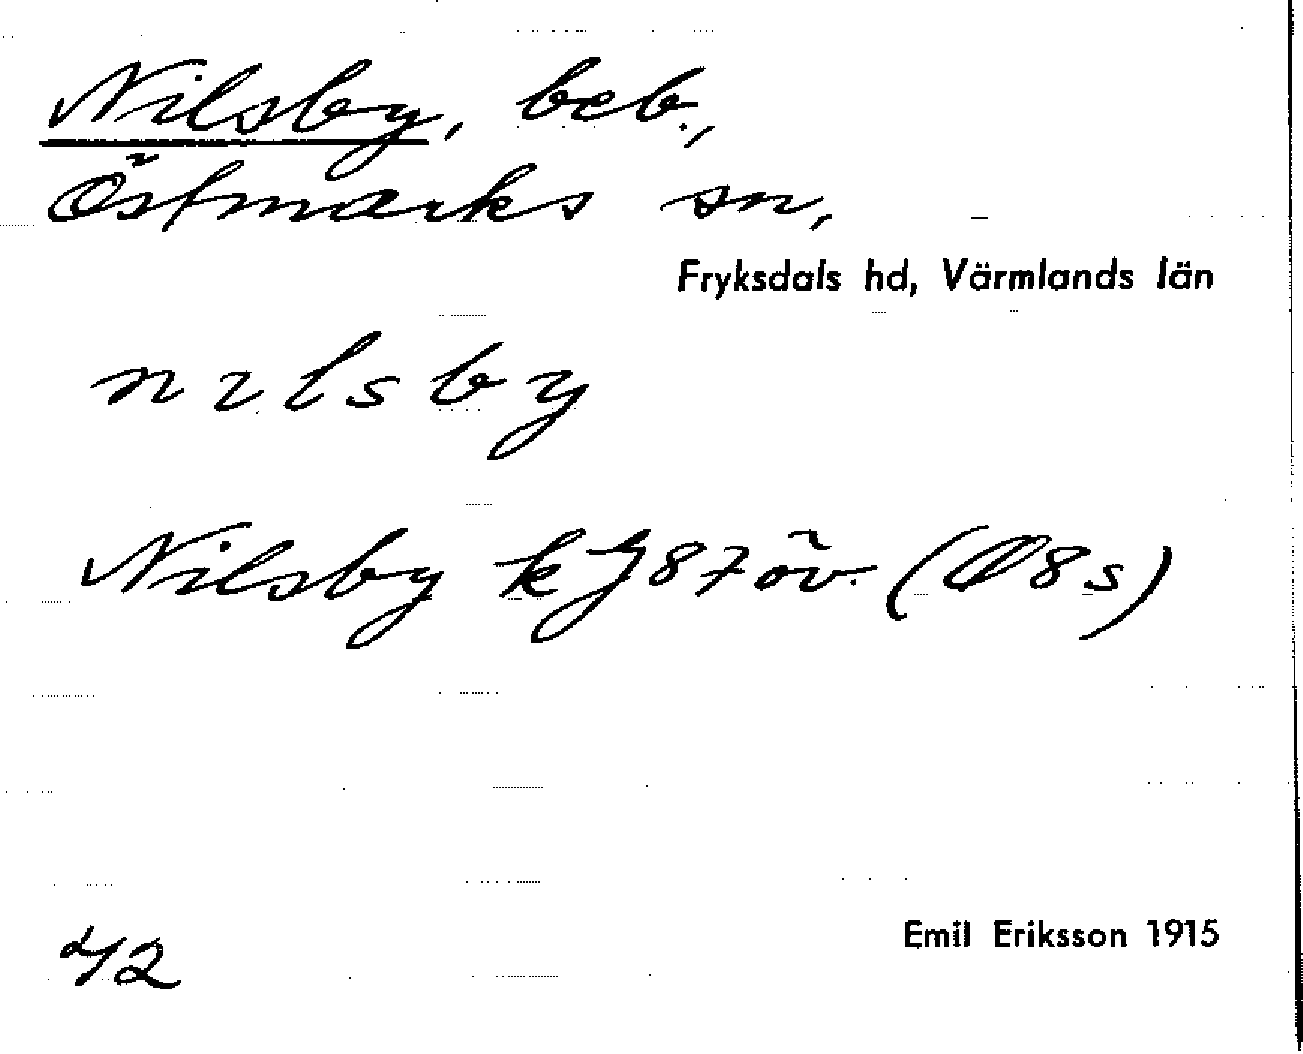 Nilsby, beb.,
Östmarks sn,
Fryksdals hd, Värmlands län
nilsby
Nilsby k J87 öv. (Ø8s)
Emil Eriksson 1915
42